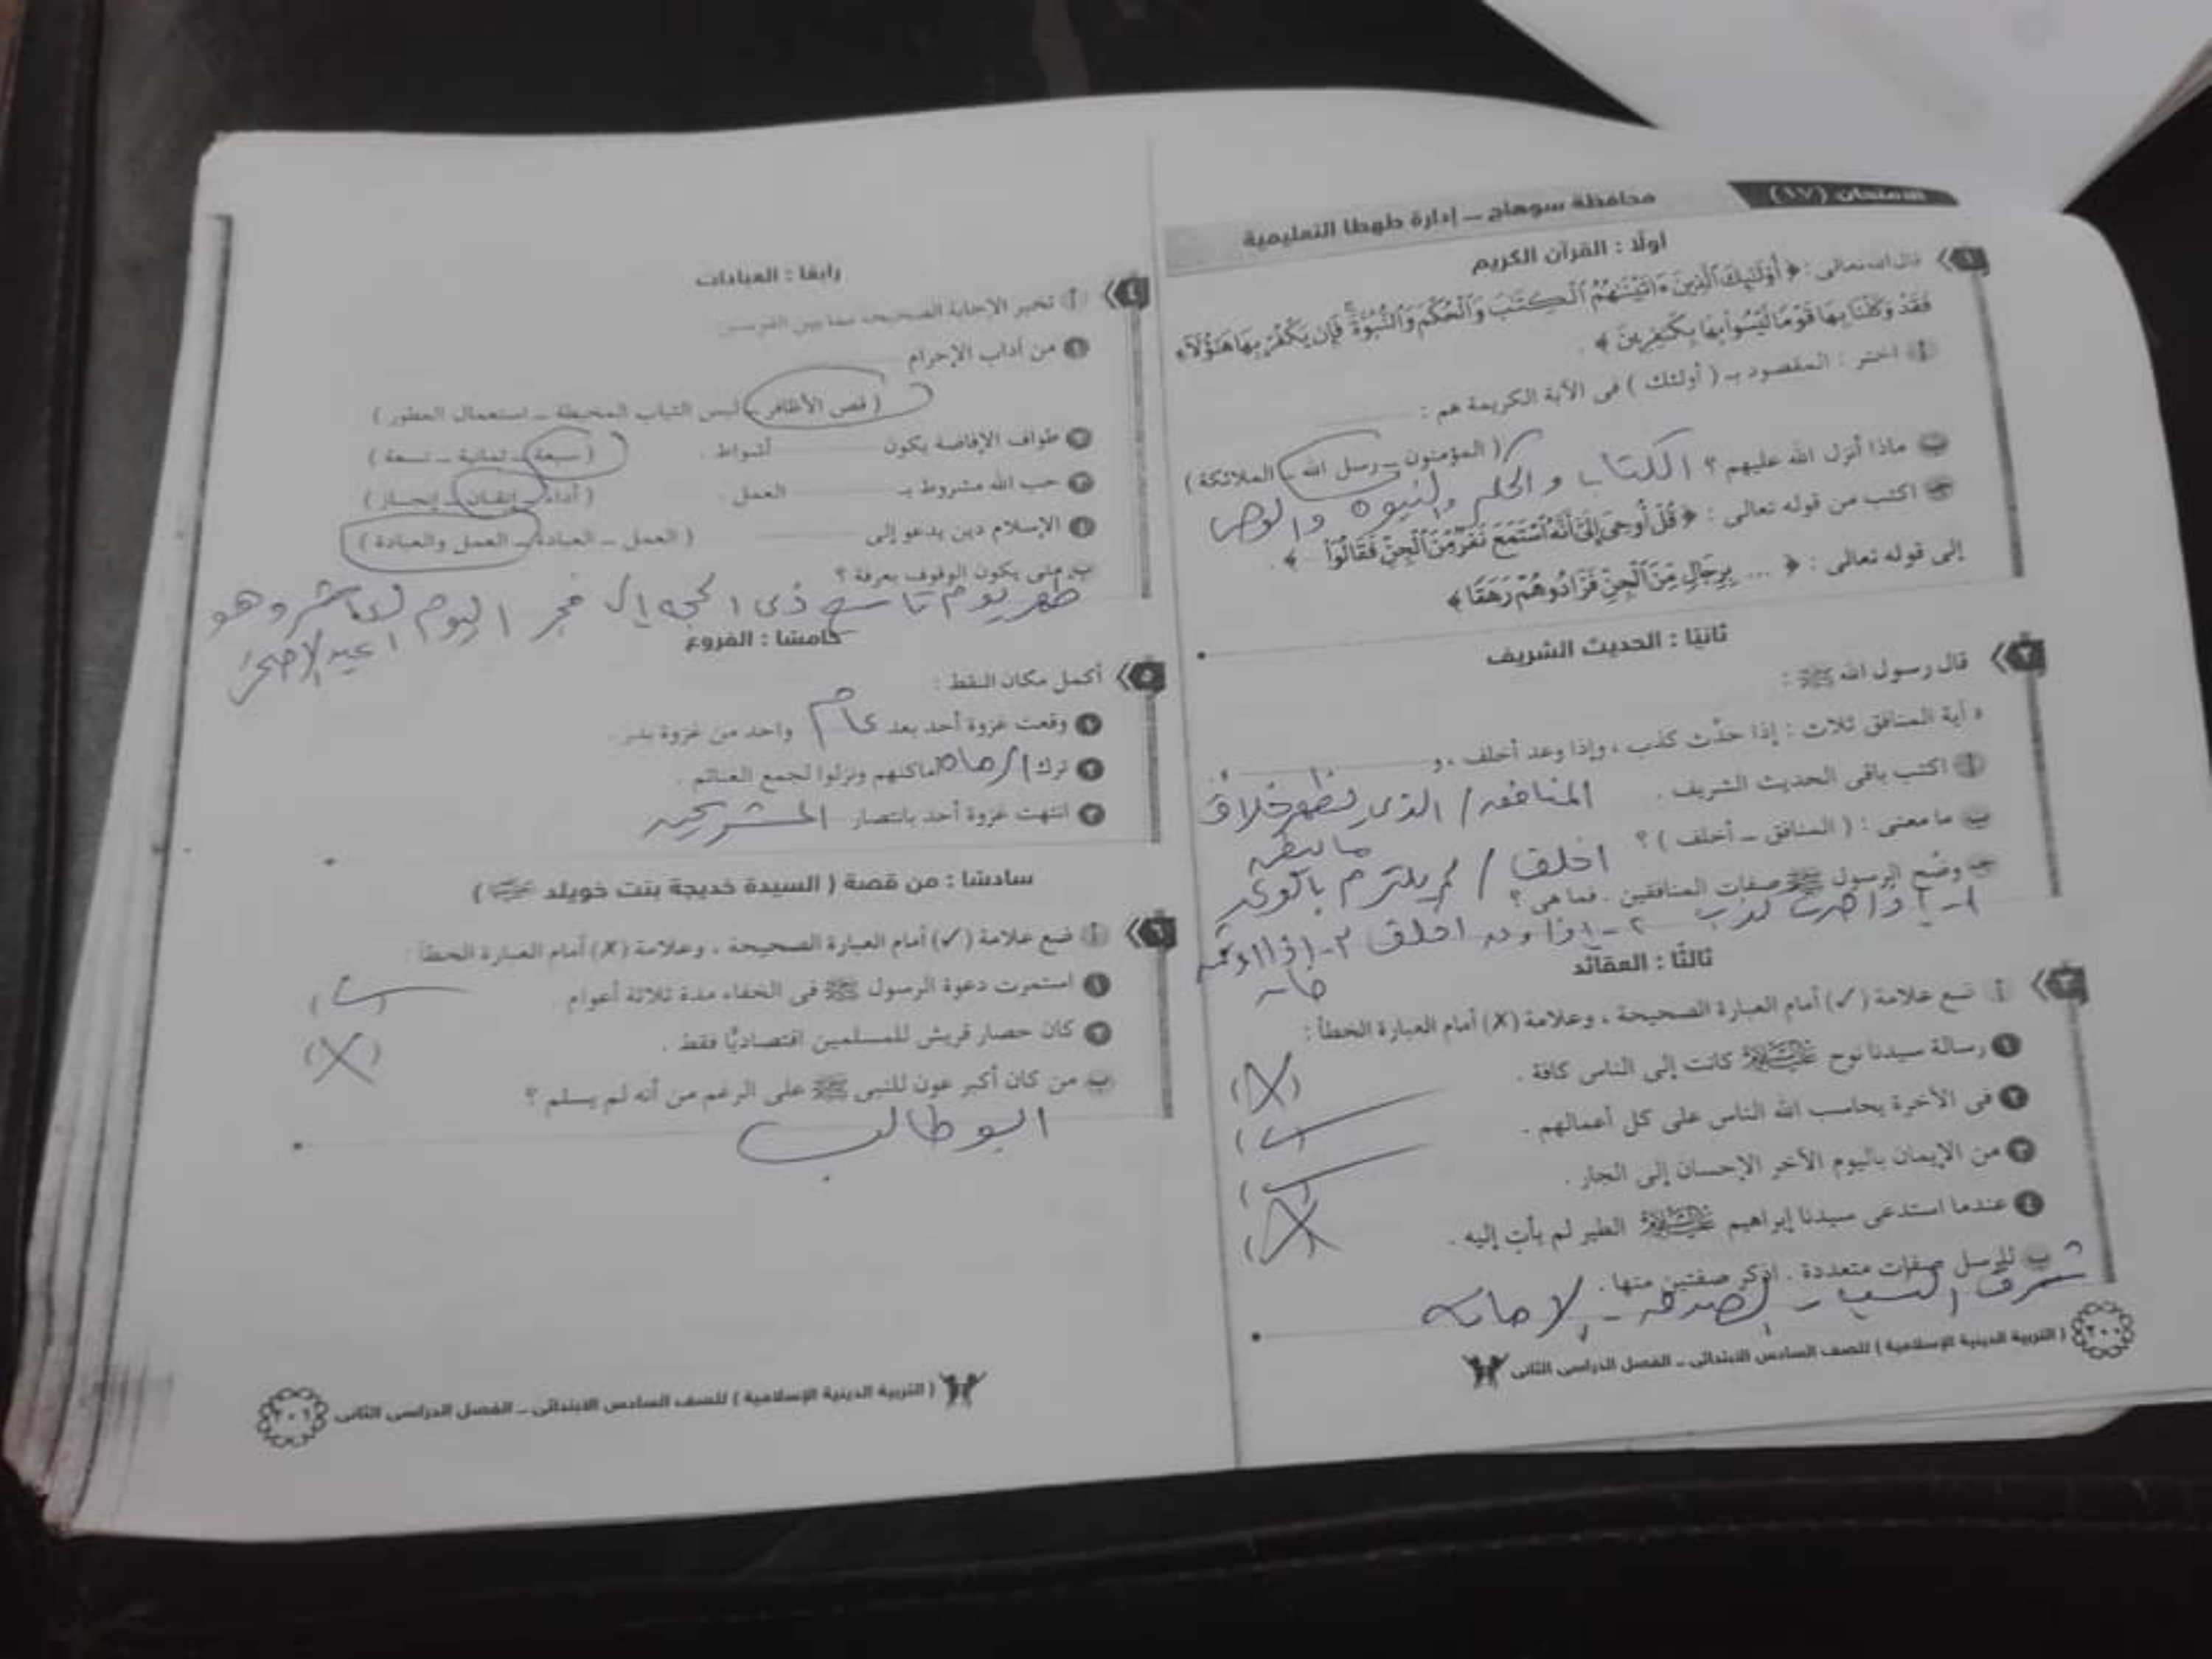 الامتحان (١٧)
محافظة سوهاج ــ إدارة طهطا التعليمية
أولًا : القرآن الكريم
١ قال الله تعالى : ﴿ أُوْلَٰٓئِكَ ٱلَّذِينَ ءَاتَيْنَٰهُمُ ٱلْكِتَٰبَ وَٱلْحُكْمَ وَٱلنُّبُوَّةَ ۚ فَإِن يَكْفُرْ بِهَا هَٰٓؤُلَآءِ
فَقَدْ وَكَّلْنَا بِهَا قَوْمًا لَّيْسُوا۟ بِهَا بِكَٰفِرِينَ ﴾ .
أ اختر : المقصود بـ ( أولئك ) فى الآية الكريمة هم :
( المؤمنون ــ رسل الله ــ الملائكة )
ب ماذا أنزل الله عليهم ؟ الكتاب والحكم والنبوة
جـ اكتب من قوله تعالى : ﴿ قُلْ أُوحِىَ إِلَىَّ أَنَّهُ ٱسْتَمَعَ نَفَرٌ مِّنَ ٱلْجِنِّ فَقَالُوٓا۟ ﴾ .
إلى قوله تعالى : ﴿ ... بِرِجَالٍ مِّنَ ٱلْجِنِّ فَزَادُوهُمْ رَهَقًا ﴾
ثانيًا : الحديث الشريف
٢ قال رسول الله ﷺ :
« آية المنافق ثلاث : إذا حدَّث كذب ، وإذا وعد أخلف ، و
أ اكتب باقى الحديث الشريف .
المنافق / الذى يظهر خلاف
ما يبطن
ب ما معنى : ( المنافق ــ أخلف ) ؟ اخلف / لم يلتزم بالوعد
جـ وضَّح الرسول ﷺ صفات المنافقين . فما هى ؟
١- إذا حدث كذب ٢- إذا وعد اخلف ٣- إذا اؤتمن
خان
ثالثًا : العقائد
٣ أ ضع علامة (✓) أمام العبارة الصحيحة ، وعلامة (X) أمام العبارة الخطأ :
١ رسالة سيدنا نوح عليه السلام كانت إلى الناس كافة . (X)
٢ فى الآخرة يحاسب الله الناس على كل أعمالهم . (✓)
٣ من الإيمان باليوم الآخر الإحسان إلى الجار . (✓)
٤ عندما استدعى سيدنا إبراهيم عليه السلام الطير لم يأتِ إليه . (X)
ب للرسل صفات متعددة . اذكر صفتين منها .
شرف النسب - الصدق - الامانة
٢٠٠ ( التربية الدينية الإسلامية ) للصف السادس الابتدائى ــ الفصل الدراسى الثانى
رابعًا : العبادات
٤ أ تخير الإجابة الصحيحة مما بين القوسين :
١ من آداب الإحرام
( قص الأظافر ــ لبس الثياب المخيطة ــ استعمال العطور )
٢ طواف الإفاضة يكون أشواط . ( سبعة ــ ثمانية ــ تسعة )
٣ حب الله مشروط بـ العمل . ( أداء ــ إتقان ــ إنجاز )
٤ الإسلام دين يدعو إلى ( العمل ــ العبادة ــ العمل والعبادة )
ب متى يكون الوقوف بعرفة ؟
ظهر يوم تاسع ذى الحجة إلى فجر اليوم العاشر وهو
عيد الاضحى
خامسًا : الفروع
٥ أكمل مكان النقط :
١ وقعت غزوة أحد بعد عام واحد من غزوة بدر .
٢ ترك الرماه أماكنهم ونزلوا لجمع الغنائم .
٣ انتهت غزوة أحد بانتصار المشركين
سادسًا : من قصة ( السيدة خديجة بنت خويلد )
٦ أ ضع علامة (✓) أمام العبارة الصحيحة ، وعلامة (X) أمام العبارة الخطأ :
١ استمرت دعوة الرسول ﷺ فى الخفاء مدة ثلاثة أعوام (✓)
٢ كان حصار قريش للمسلمين اقتصاديًّا فقط . (X)
ب من كان أكبر عون للنبى ﷺ على الرغم من أنه لم يسلم ؟
ابو طالب
( التربية الدينية الإسلامية ) للصف السادس الابتدائى ــ الفصل الدراسى الثانى ٢٠١